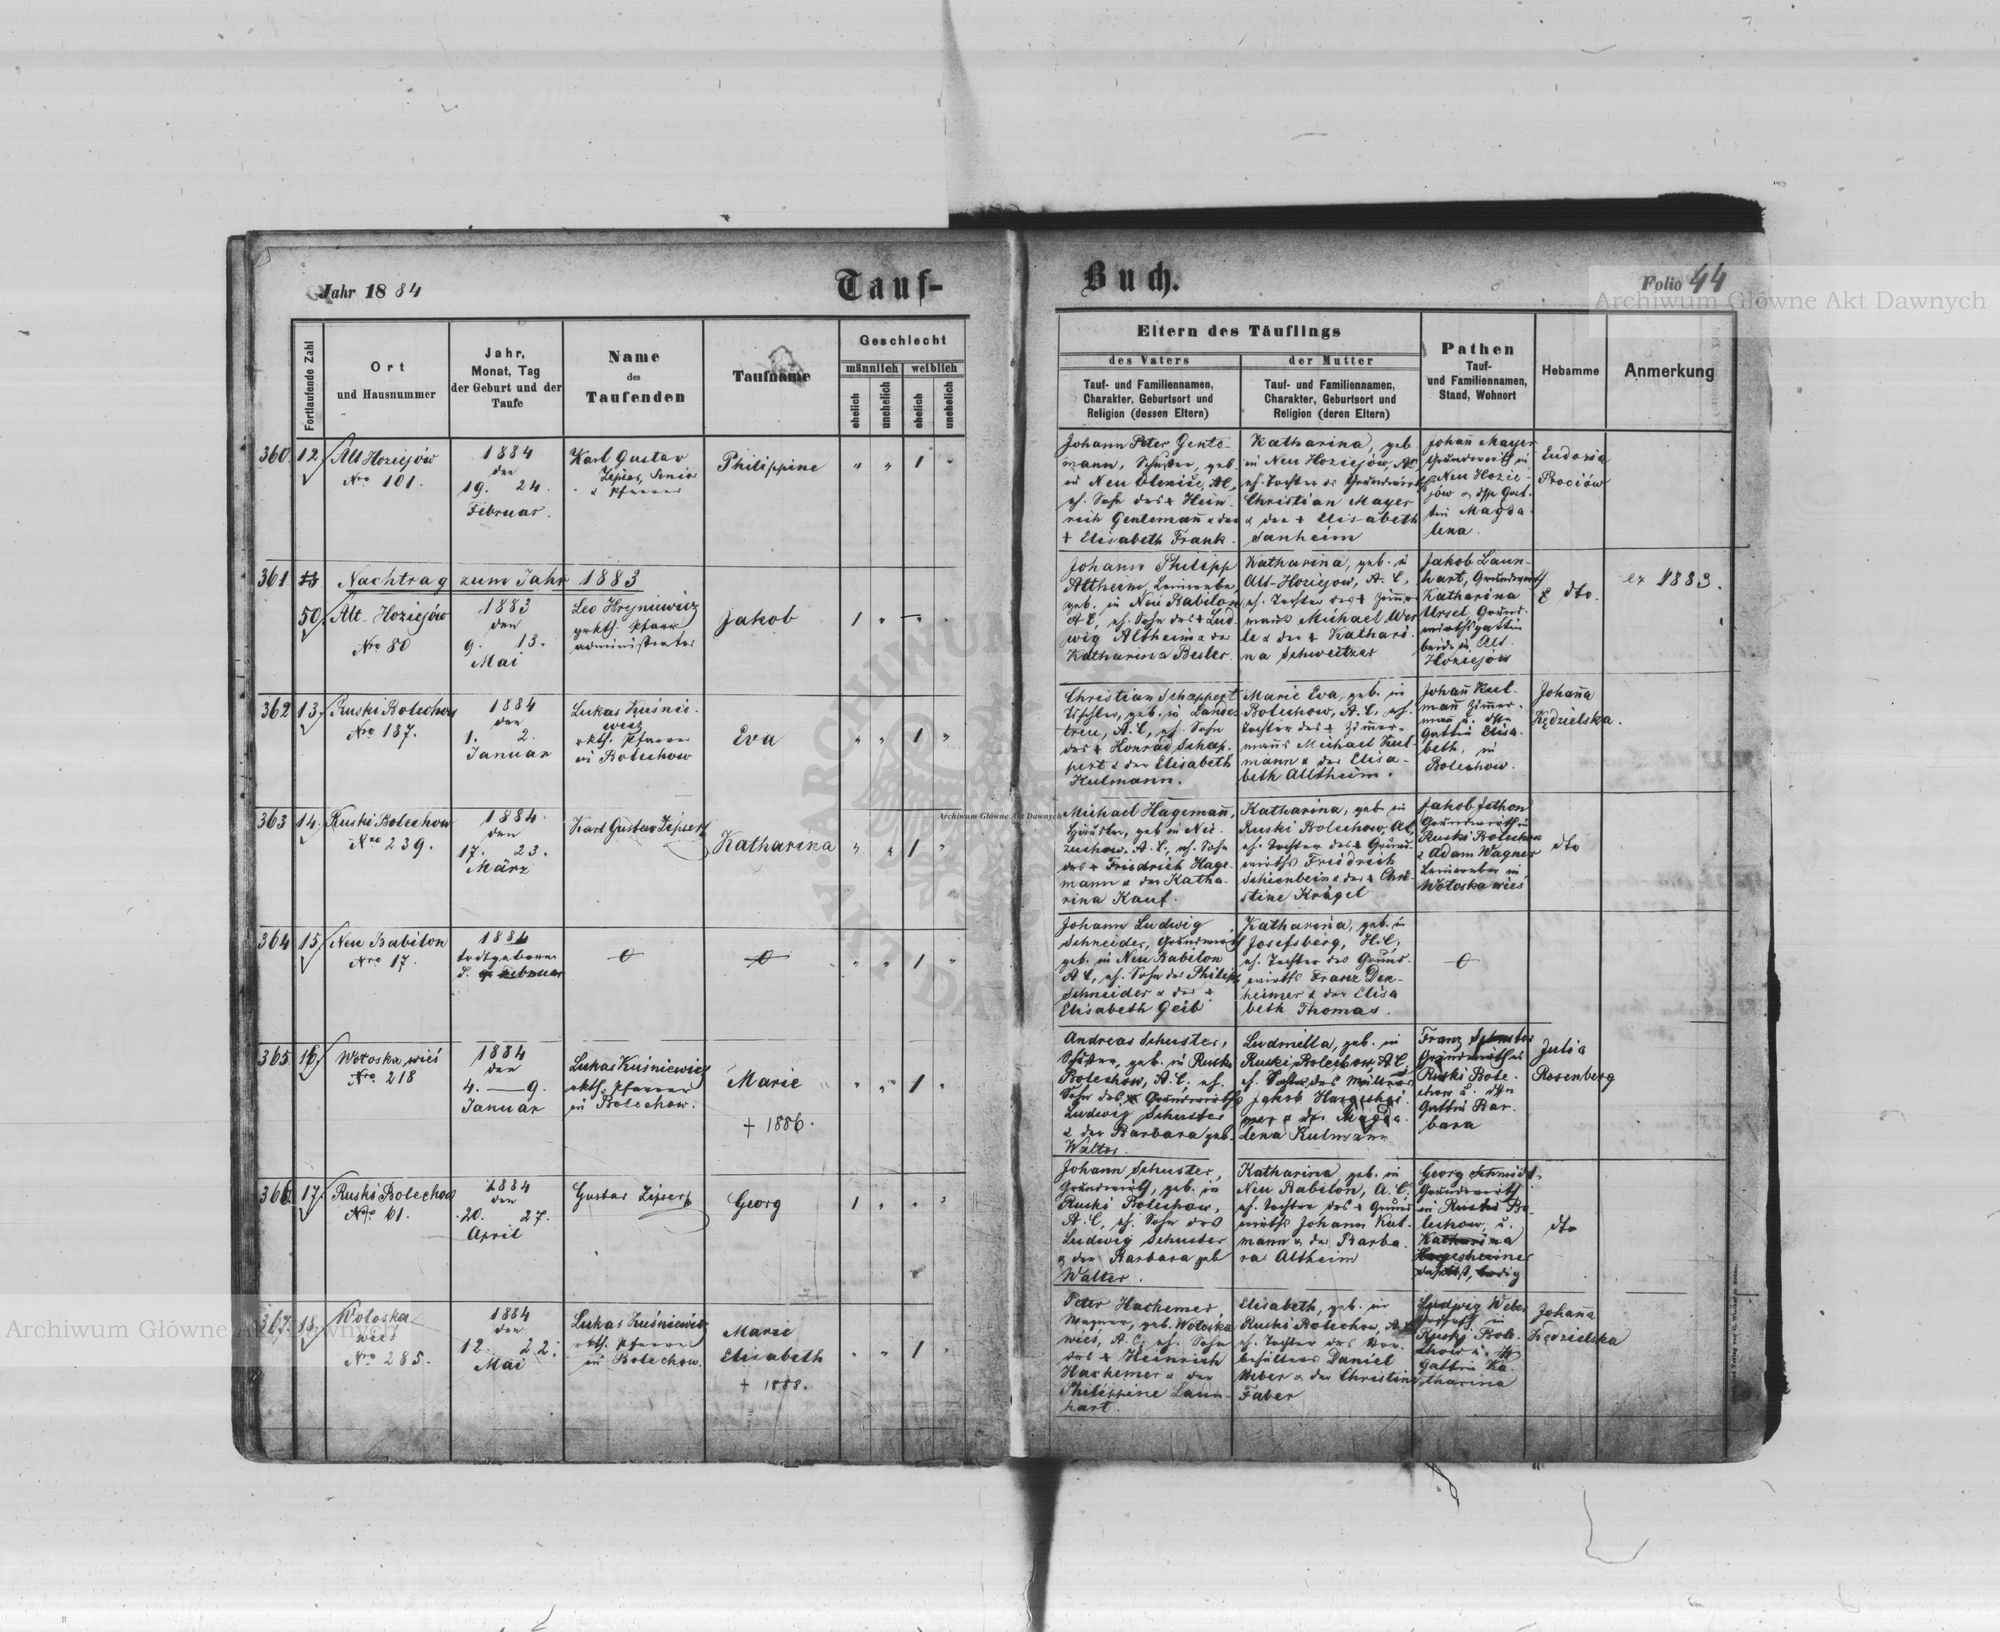 Jahr 1884
Tauf-
Buch.
Folio 44
Archiwum Główne Akt Dawnych
Fortlaufende Zahl
Ort
und Hausnummer
Jahr,
Monat, Tag
der Geburt und der
Taufe
Name
des
Taufenden
Taufname
Geschlecht
männlich
weiblich
ehelich
unehelich
ehelich
unehelich
Eltern des Täuflings
des Vaters
Tauf- und Familiennamen,
Charakter, Geburtsort und
Religion (dessen Eltern)
der Mutter
Tauf- und Familiennamen,
Charakter, Geburtsort und
Religion (deren Eltern)
Pathen
Tauf-
und Familiennamen,
Stand, Wohnort
Hebamme
Anmerkung
360
12
Alt Hoziejów
Nro 101.
1884
den
19. 24.
Februar.
Karl Gustav
Zipser, Senior
& Pfarrer
Philippine
" " 1 "
Johann Peter Gente-
mann, Schuster, geb.
in Neu Oleksice, AC,
eh. Sohn des + Hein-
rich Gentemann & der
+ Elisabeth Frank.
Katharina, geb.
in Neu Hoziejów, AC
eh. Tochter des Grundwirth
Christian Mayer
& der + Elisabeth
Sanheim
Johan̄ Mayer
Grundwirth in
Neu Hozie-
jów & Gat-
tin Magda-
lena.
Eudoxia
Prociów
361
13
Nachtrag zum Jahr 1883
50
Alt. Hoziejów
Nro 80
1883
den
9. 13.
Mai
Leo Hryniewicz
grkth. Pfarr
administrator
Jakob
1 " — "
Johann Philipp
Altheim, Leinweber,
geb. in Neu Babilon
AC, eh. Sohn des + Lud-
wig Altheim & der
Katharina Besler.
Katharina, geb. in
Alt-Hoziejow, A. C,
eh. Tochter des + Zimmer-
manns Michael Wer-
le & der + Kathari-
na Schweitzer
Jakob Laun-
hart, Grundwirth
Katharina
Ursel, Grund-
wirthsgattin
beide in Alt
Hoziejów
dto.
ex 1883.
362
13.
Ruski Bolechow
Nro 187.
1884
den
1. 2.
Januar
Lukas Kuśnie-
wicz
rkth. Pfarrer
in Bolechow
Eva
" " 1 "
Christian Schappert
Tischler, geb. in Landes-
treu, A.C, eh. Sohn
des + Konrad Schap-
pert & der Elisabeth
Kulmann.
Marie Eva, geb. in
Bolechow, A. C, eh.
Tochter des + Zimmer-
manns Michael Kul-
mann & der Elisa-
beth Altheim.
Johan̄ Kul-
man̄ Zimmer-
man̄ u.
Gattin Elisa-
beth, in
Bolechow.
Johan̄a
Kędzielska.
363
14.
Ruski Bolechow
Nro 239.
1884.
den
17. 23.
März
Karl Gustav Zipser
Katharina
" " 1 "
Michael Hageman̄,
Häusler, geb. in Nie-
zuchow, A.C, eh. Sohn
des + Friedrich Hage-
mann & der Katha-
rina Kauf.
Katharina, geb. in
Ruski Bolechow, AC,
eh. Tochter des + Grund-
wirths Friedrich
Schienbein & der + Chri-
stine Krägel
Jakob Jethon
Grundwirth in
Ruski Bolechow
& Adam Wagner
Leinweber in
Wołoska wieś
dto
364
15.
Neu Babilon
Nro 17.
1884
todtgeboren
d. Februar
" " 1 "
Johann Ludwig
Schneider, Grundwirth
geb. in Neu Babilon
AC, eh. Sohn des Philipp
Schneider & der +
Elisabeth Geib
Katharina, geb. in
Josefsberg, H.C,
eh. Tochter des Grund-
wirths Franz Den-
heimer & der Elisa
beth Thomas.
365
16
Wołoska wieś
Nro 218
1884
den
4. — 9.
Januar
Lukas Kuśniewicz
rkth. Pfarrer
in Bolechow.
Marie
+ 1886.
" " 1 "
Andreas Schuster,
geb. in Ruski
Bolechow, A.C. eh.
Sohn des Grundwirths
Ludwig Schuster
& der Barbara geb.
Walter.
Ludmilla, geb. in
Ruski Bolechow, AC,
eh. Tochter des Müllers
Jakob Hargeshei-
mer & der Magda-
lena Kulmann
Franz Schuster
Grundwirth in
Ruski Bole-
chow u.
Gattin Bar-
bara
Julia
Rosenberg
366
17.
Ruski Bolechow
Nro 61.
1884
den
20. 27.
April
Gustav Zipser
Georg
1 " " "
Johann Schuster,
Grundwirth, geb. in
Ruski Bolechow,
A.C, eh. Sohn des
Ludwig Schuster
& der Barbara geb
Walter.
Katharina geb. in
Neu Babilon, A.C,
eh. Tochter des + Grund
wirths Johann Kul-
mann & der Barba-
ra Altheim
Georg Schmidt,
Grundwirth
in Ruski Bo-
lechow, u.
Katharina
Hargesheimer
daselbst, ledig
dto
367.
18.
Wołoska
wieś
Nro 285.
1884
den
12. 22.
Mai
Lukas Kuśniewicz
rkth. Pfarrer
in Bolechow.
Marie
Elisabeth
+ 1888.
" " 1 "
Peter Hachemer,
Wagner, geb. Wołoska
wieś, A.C, eh. Sohn
des + Heinrich
Hachemer & der
Philippine Laun-
hart.
Elisabeth, geb. in
Ruski Bolechow, A.C
eh. Tochter des Vor-
Daniel
Weber & der Christine
Faber
Ludwig Weber
in
Ruski Bole-
chow u.
Gattin Ka-
tharina
Johan̄a
Kędzielska
Archiwum Główne Akt Dawnych
Archiwum Główne Akt Dawnych